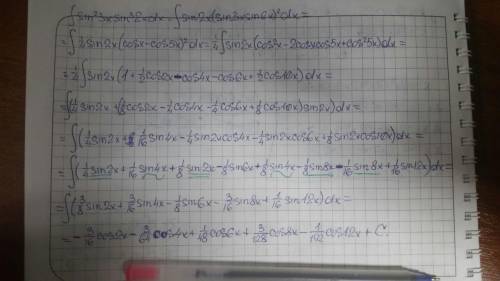 ∫sin²3x sin³2x dx = ∫sin2x(sin3x sin2x)²dx =
= ∫¼sin2x(cosx-cos5x)²dx = ¼∫sin2x(cos²x-2cosxcos5x+cos²5x)dx =
= ¼∫sin2x(1+½cos2x-cos4x-cos6x+½cos10x)dx =
= ∫(¼sin2x+(⅛cos2x-¼cos4x-¼cos6x+⅛cos10x)sin2x)dx =
= ∫(¼sin2x+1/16 sin4x-¼sin2xcos4x-¼sin2xcos6x+⅛sin2xcos10x)dx =
= ∫(¼sin2x+1/16 sin4x+⅛sin2x-⅛sin6x+⅛sin4x-⅛sin8x-1/16 sin8x+1/16 sin12x)dx =
= ∫(⅜sin2x+3/16 sin4x-⅛sin6x-3/16 sin8x+1/16 sin12x)dx =
= -3/16 cos2x-3/64 cos4x+1/48 cos6x+3/128 cos8x-1/192 cos12x+C.